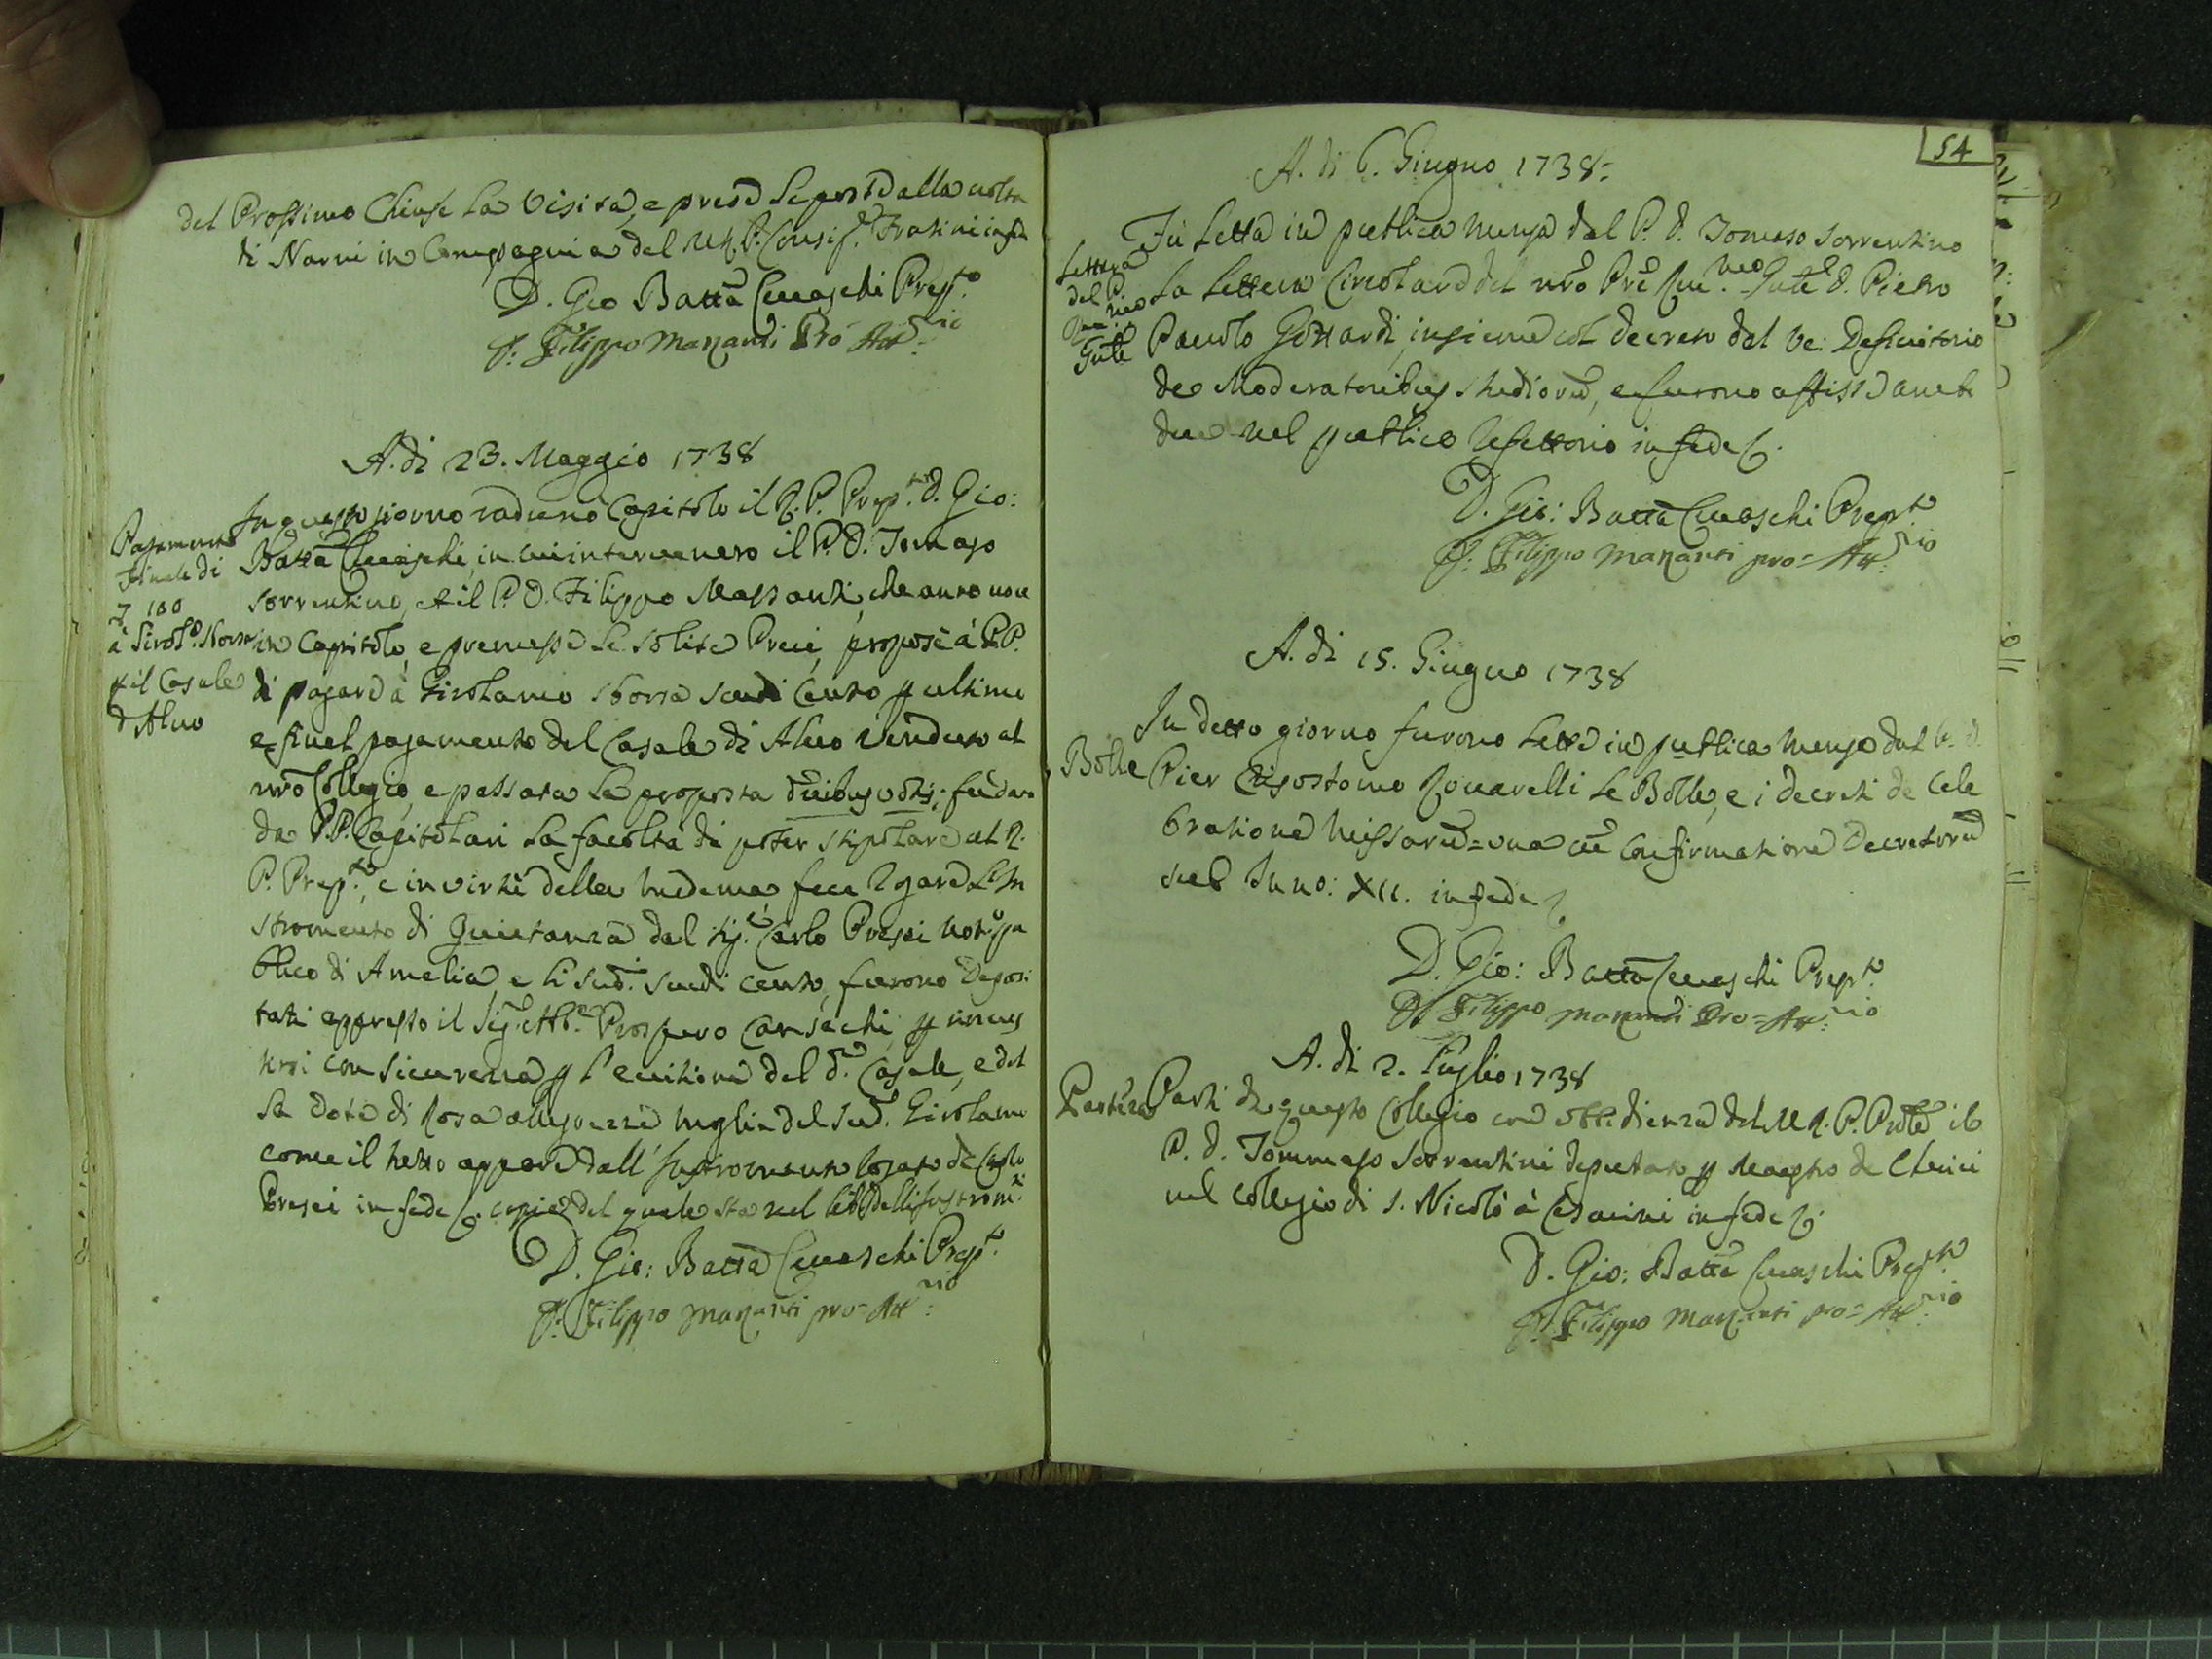 del Prossimo Chiuse la Visita, e prese le poste alla volta
di Narni in Compagnia del M.R.P. Consig.e Fratini in fede
D. Gio Batta Cevaschi Prep.to
D: Filippo Massanti Pro Att.rio
A. di 23. Maggio 1738
Pagamento
finale di
100
à Girol.o Storsa
p il Casale
d'Alvo
In questo giorno radunò Capitolo il R. P. Prep.to d. Gio:
Batta Cevaschi, in cui intervenero il P. D. Tomaso
Sorrentino, et il P. D. Filippo Massanti, che anno voce
in Capitolo, e premesse le solite Preci, propose à P.P.
di pagare à Girolamo Storsa scudi cento p ultimo
e final pagamento del Casale di Alvo venduto al
nro Collegio, e passata la proposta oibus votis; fù data
da P.P. Capitolari la facoltà di poter stipolare al R.
P. Prep.to, e in virtù della medema, fece rogare l'In
stromento di Quietanza dal Sig.e Carlo Presei Not.o pu
blico di Amelia, e li sud.i scudi cento, furono deposi
tati appresso il Sig.e Prospero Carsachi, p
con sicurezza p l'evizione del d.o Casale, e del
la dote di Rosa moglie del sud.o Girolamo
come il tutto appare dall' Instromento rogato da Carlo
Presei in fede &. copia del quale sta nel libro delli Instrom.ti
D. Gio: Batta Cevaschi Prep.to
D: Filippo Massanti pro=Att.rio
54
A. di 6. Giugno 1738:
Lettera
del P.
Gnle
Fù letta in publica mensa dal P. d. Tomaso Sorrentino
la lettera Circolare del nro Pre Rev.mo Gnle d. Pietro
Pauolo Gottardi, insieme col decreto del Ve: Definitorio
de Moderatoribus studiorũ, e furono affisse ambe
due nel publico Refettorio in fede &.
D. Gio: Batta Cevaschi Prep.to
D: Filippo Massanti pro=Att.rio
A. di 15. Giugno 1738
Bolle
In detto giorno furono lette in publica mensa dal P. d.
Pier Crisostomo Rovarelli le Bolle, e i decreti de Cele
bratione Missarũ=una cũ Confirmatione Decretorũ
sub Inno: XII. in fede &
D. Gio: Batta Cevaschi Prep.to
D. Filippo Massanti Pro=Att.rio
A. di 2. Luglio 1738
Partenza
Parti da questo Collegio con obbedienza del M.R.P. Prõle il
P. d. Tommaso Sorrentini deputato p Maestro de Cherici
nel Collegio di S. Nicolò à Cesarini in fede &.
D. Gio: Batta Cevaschi Prep.to
D. Filippo Massanti pro=Att.rio